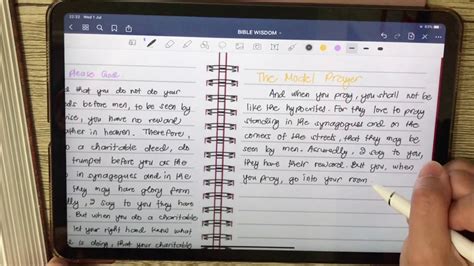 22:32 Wed 1 Jul
BIBLE WISDOM
Please God
d that you do not do your
ds before men, to be seen by
ise, you have no reward
ather in heaven. Therefore,
o a charitable deed, do
trumpet before you as the
in synagogues and in the
they may have glory from
ly, I say to you they have
But when you do a charitable
let your right hand what
is doing, that your charitable
The Model Prayer
And when you pray, you shall not be
like the hypocrites. For they love to pray
standing in the synagogues and on the
corners of the streets, that they may be
seen by men. Assuredly, I say to you,
they have their reward. But you, when
you pray, go into your room